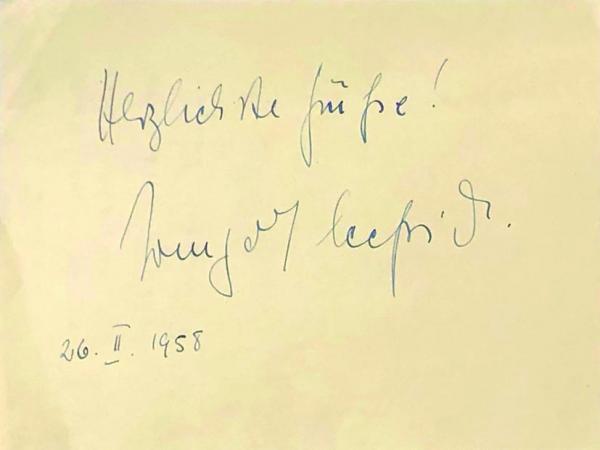 Herzlichste Grüße!
Irmgard Seefried.
26. II. 1958